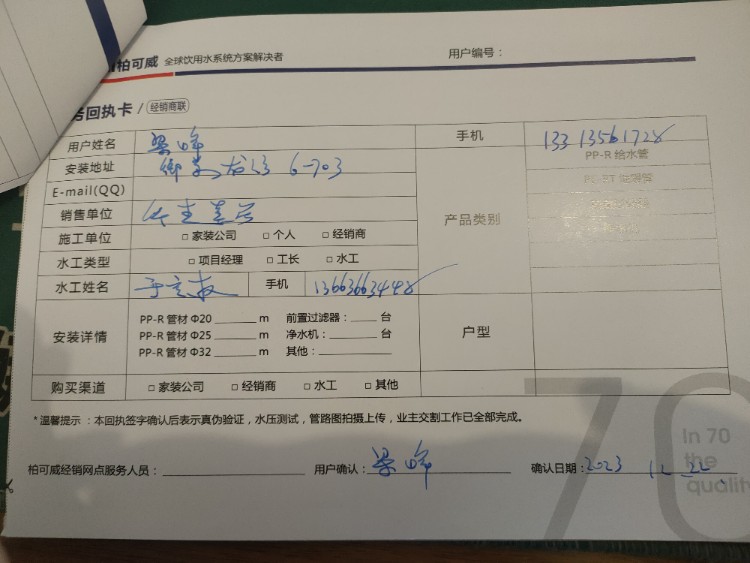 柏可威 全球饮用水系统方案解决者 用户编号：
回执卡 / 经销商联
用户姓名 梁峰 手机
安装地址 6-703 PP-R 给水管
E-mail(QQ)
销售单位 产品类别
施工单位 □ 家装公司 □ 个人 □ 经销商
水工类型 □ 项目经理 □ 工长 □ 水工
水工姓名 手机 13663663448
安装详情 PP-R 管材 Φ20 ______ m 前置过滤器：____ 台 户型
PP-R 管材 Φ25 ______ m 净水机：______ 台
PP-R 管材 Φ32 ______ m 其他：__________
购买渠道 □ 家装公司 □ 经销商 □ 水工 □ 其他
*温馨提示 ：本回执签字确认后表示真伪验证，水压测试，管路图拍摄上传，业主交割工作已全部完成。
70
In 70
the
qualit
柏可威经销网点服务人员：__________ 用户确认：梁峰 确认日期：2023 12 22